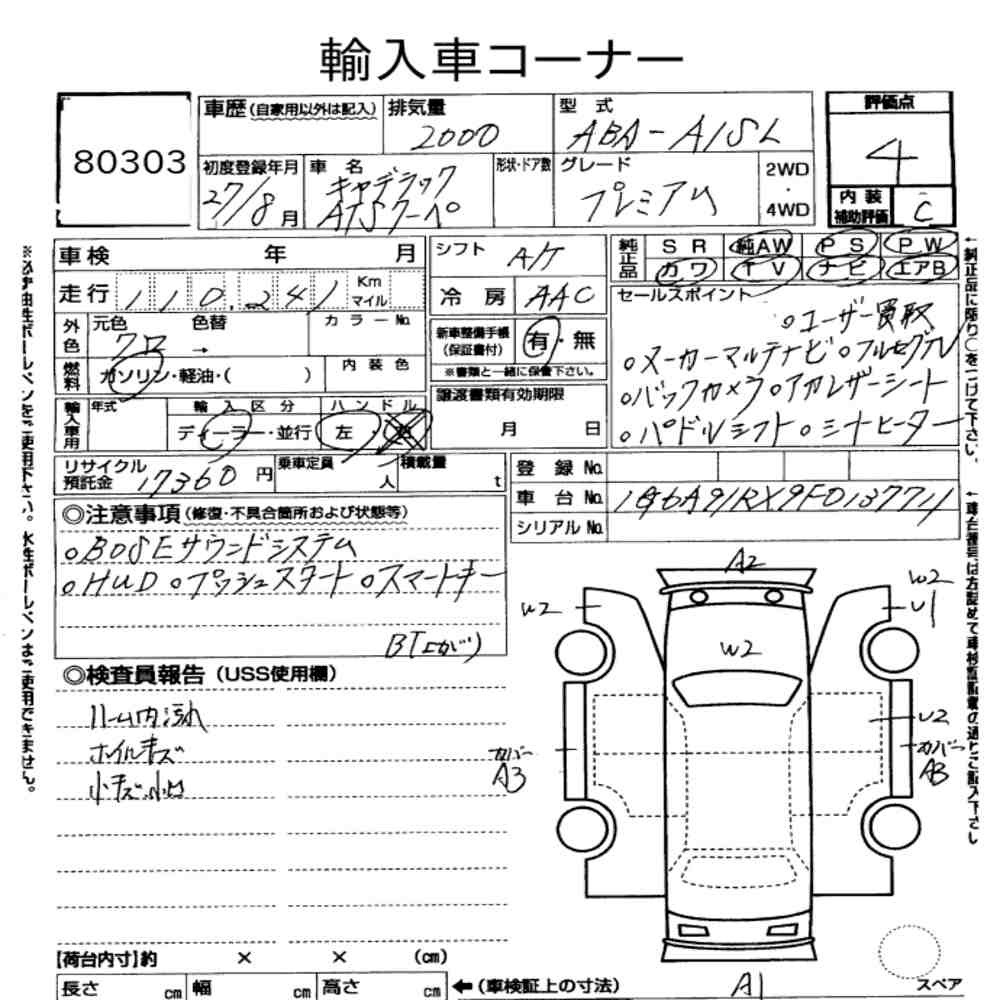 輸入車コーナー
80303
車歴(自家用以外は記入)
排気量
2000
型 式
ABA-A1SL
評価点
4
初度登録年月
27/8月
車 名
キャデラック
ATSクーペ
形状・ドア数
グレード
プレミアム
2WD
・
4WD
内装
補助評価
C
車検 年 月
シフト
A/T
純正品
SR 純AW PS PW
カワ TV ナビ エアB
走行
110,241
Km
マイル
冷房
AAC
セールスポイント
○ユーザー買取
○メーカーマルチナビ ○フルセグTV
○バックカメラ ○アカレザーシート
○パドルシフト ○シートヒーター
外色
元色 色替
クロ →
カラーNo.
新車整備手帳
(保証書付)
有・無
※書類と一緒に保管下さい。
燃料
ガソリン・軽油・( )
内装色
譲渡書類有効期限
月 日
輸入車用
年式
輸入区分
ディーラー・並行
ハンドル
左・右
リサイクル
預託金
17360円
乗車定員
人
積載量
t
登録No.
車台No.
1G6A91RX9F0137711
シリアルNo.
◎注意事項(修復・不具合箇所および状態等)
○BOSEサウンドシステム
○HUD ○プッシュスタート ○スマートキー
BT上がり
◎検査員報告(USS使用欄)
ルーム内汚れ
ホイルキズ
小キズ・小凹
A2
W2
W2
U1
W2
U2
カバー
A3
カバー
A3
A1
スペア
【荷台内寸】約 × × (cm)
長さ cm 幅 cm 高さ cm
←(車検証上の寸法)
※必ず油性ボールペンをご使用下さい。水性ボールペンはご使用できません。
←純正品に限り○をつけて下さい。
←車台番号は左詰めで車検証記載の通りご記入下さい